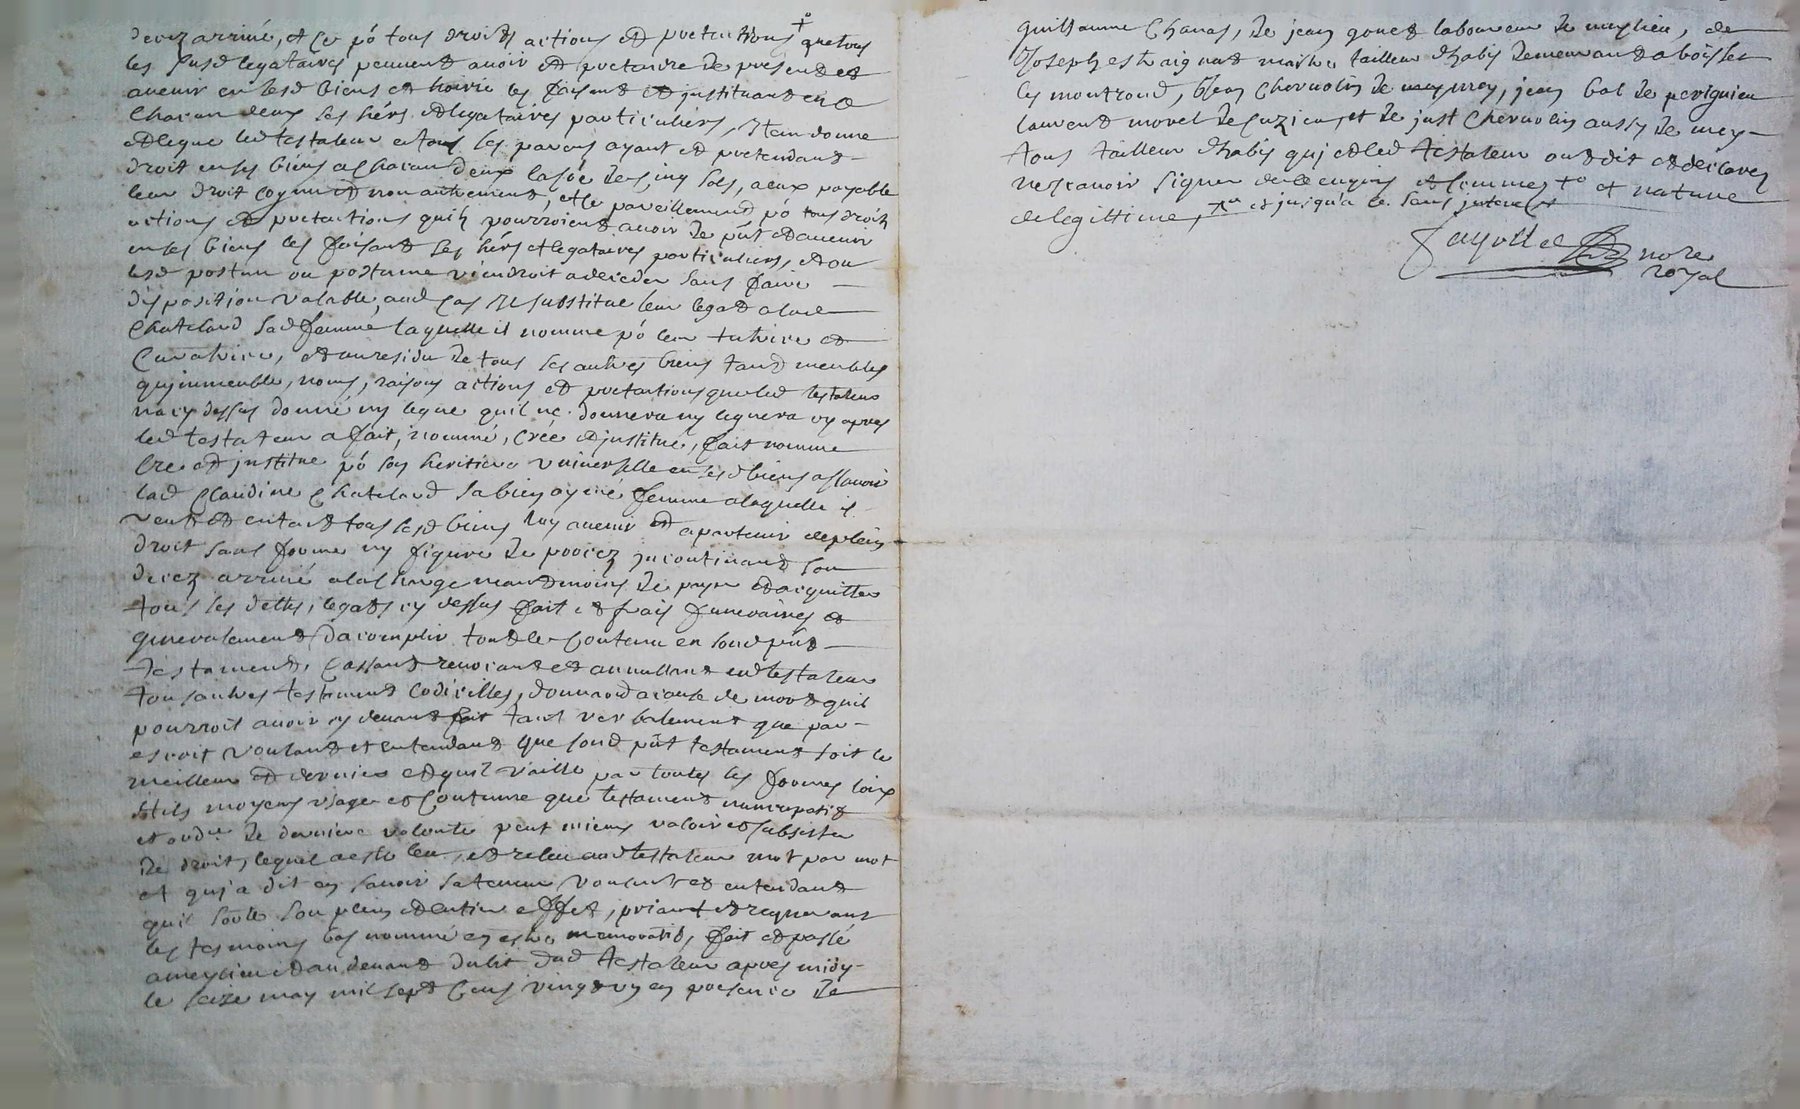 decez arrivé, et ce pó tous droits actions et pretentions + que tous
les susd legataires peuvent avoir et pretendre de present et
avenir en sesd biens et hoirie les faisant et justituant en ce
chacun deux ses hérs et legataires particuliers, Item donne
et legue led testateur a tous les parens ayant et pretendant
droit en ses biens a chacun deux la sôe de cinq sols, a eux payable
leur droit coynu et non autrement, et ce pareillement pó tous droits
actions et pretentions quils pourroient avoir de pñt et avenir
en ses biens les faisant ses hérs et legataires particuliers, et ou
lesd postum ou postume viendroit a deceder sans faire
disposition valable, aud cas Il substitue leur legat a lad
Chatelard sad femme laquelle il nomme pó leur tutrice et
Curatrice, et au residu de tous ses autres biens tant meubles
qu immeuble, noms, raisons actions et pretentions que led testateur
na cy dessus donné ny legue quil ne donnera ny leguera cy apres
led testateur a fait, nommé, créé et justitué, fait nomme
cree et justitue pó son heritiere universelle en sesd biens assavoir
lad Claudine Chatelard sa bien aymé femme a laquelle il
veut et entent tous sesd biens luy avenir et apartenir de plein
droit sans forme ny figure de procez jncontinant son
decez arrivé a la charge neantmoins de payer et acquitter
tous les dettes, legats cy dessus fait et frais funeraires et
generalement d'acomplir tout le contenu en sond pñt
testament, Cassant revocant et annullant led testateur
tous autres testament Codicilles, donnaõn a cause de mort quil
pourroit avoir cy devant fait tant verbalement que par
escrit voulant et entendant que sond pñt testament soit le
meilleur et dernier et quil vaille par toutes les formes loix
stils moyens usages et coutume que testament nuncupatif
et ordre de derniere volonte peut mieux valoir et subsister
de droit, lequel a esté leu et releu aud testateur mot par mot
et qui a dit en savoir la teneur voulant et entendant
quil sorte son plein et entier effet, priant et requerant
les tesmoins bas nommé en estre memoratifs, fait et passé
a meylieu et au devant du lit dud testateur apres midy
le seize may mil sept cens vingt un en presence de
guillaume Chanas, de jean gonet laboureur de meylieu, de
Joseph estraignat maitre tailleur dhabis demeurant a boisset
les montrond, jean Chervolin de meyrey, jean bal de perigneu
laurent morel de Cuzieu, et de just Chervolin aussy de mey
tous tailleur dhabis qui et led testateur ont dit et déclarez
ne scavoir signer de ce enquis et sommes + et nature
de legittime, et jusqu'a ce sans interest
Payollet nore
royal